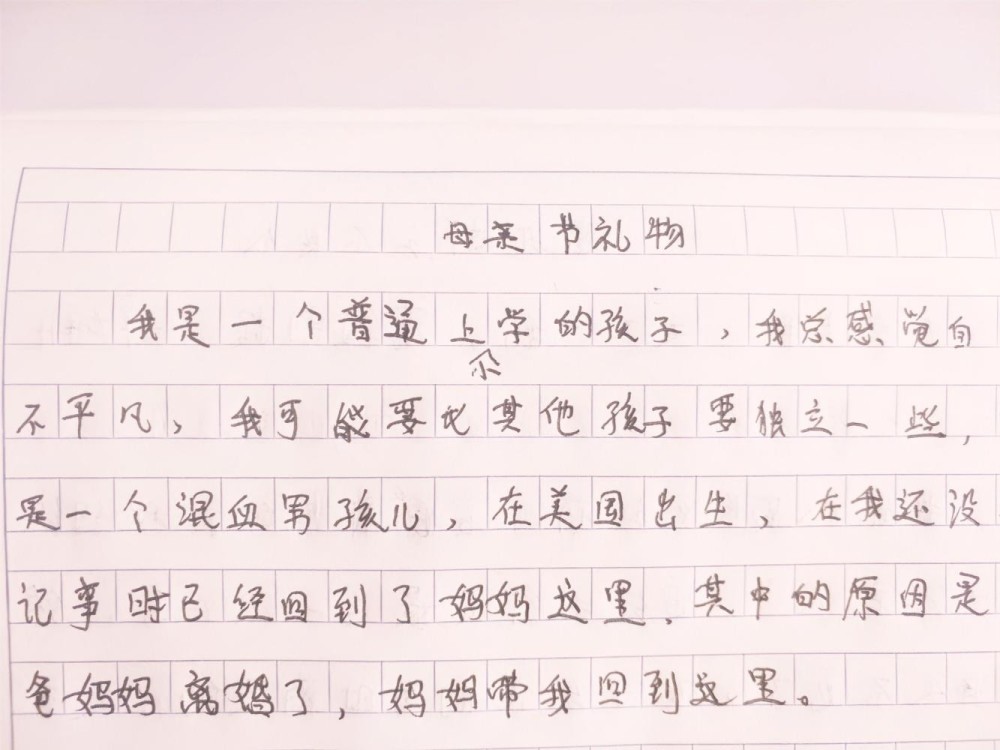 母亲节礼物
我是一个普通上学的孩子，我总感觉自
尒
不平凡，我可能要比其他孩子要独立一些，
是一个混血男孩儿，在美国出生，在我还没
记事时已经回到了妈妈这里，其中的原因是
爸妈妈离婚了，妈妈带我回到这里。